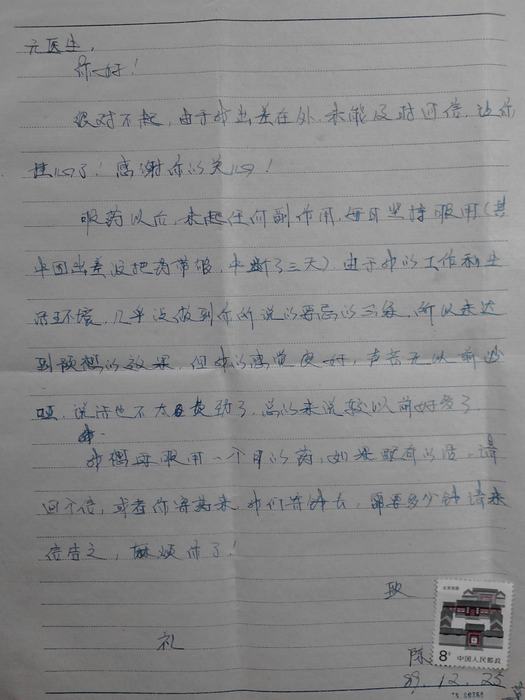 元医生，
你好！
很对不起，由于我出差在外，未能及时回信，让你
挂心了！感谢你的关心！
服药以后，未起任何副作用，每日坚持服用（其
中因出差没把药带够，中断了三天）由于我的工作和生
活环境，几乎没做到你所说的要忌的三条，所以未达
到预想的效果，但我的感觉良好，声音无以前沙
哑，说话也不太费劲了，总的来说较以前好多了
我想再服用一个月的药，如果配有的话，请
回个信，或者你寄药来，我们寄钱去，需要多少钱请来
信告之，麻烦你了！
致
礼
陈
89.12.25
8分 中国人民邮政
北京民居